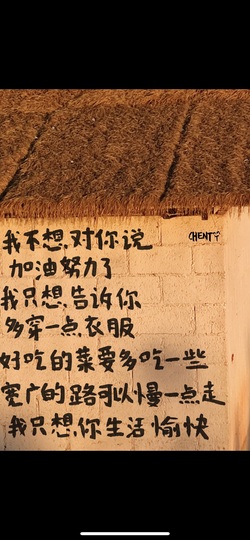 CHENT
我不想对你说
加油努力了
我只想告诉你
多穿一点衣服
好吃的菜要多吃一些
宽广的路可以慢一点走
我只想你生活愉快